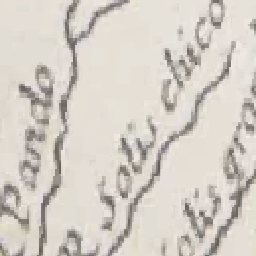 Pando
R Solis chico
olis gra